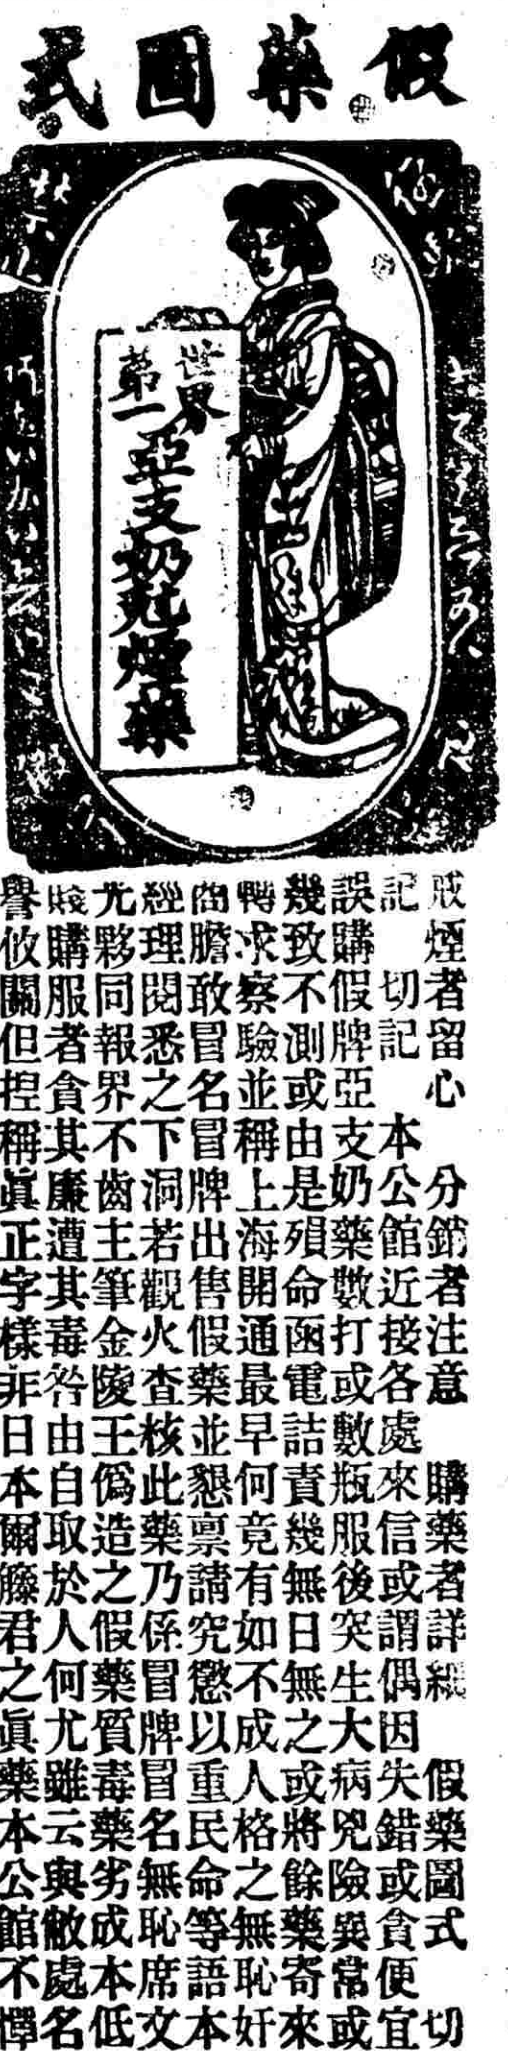 假藥圖式
世界
第一
亞支奶尅煙藥
戒煙者留心　分銷者注意　購藥者詳細　假藥圖式　切
記　切記　本公館近接各處來信或謂偶因失錯或貪便宜
誤購假牌亞支奶藥數打或數瓶服後突生大病兇險異常或
幾致不測或由是殞命函電詰責幾無日無之或將餘藥寄來
轉求察驗並稱上海開通最早何竟有如不成人格之無恥奸
商膽敢冒名冒牌出售假藥並懇禀請究懲以重民命等語本
經理閱悉之下洞若觀火查核此藥乃係冒牌冒名無恥席文
尤夥同報界不齒主筆金陵王僞造之假藥質毒藥劣成本低
賤購服者貪其廉遭其毒咎由自取於人何尤雖云與敝處名
譽攸關但揑稱眞正字樣非日本爾滕君之眞藥本公館不憚